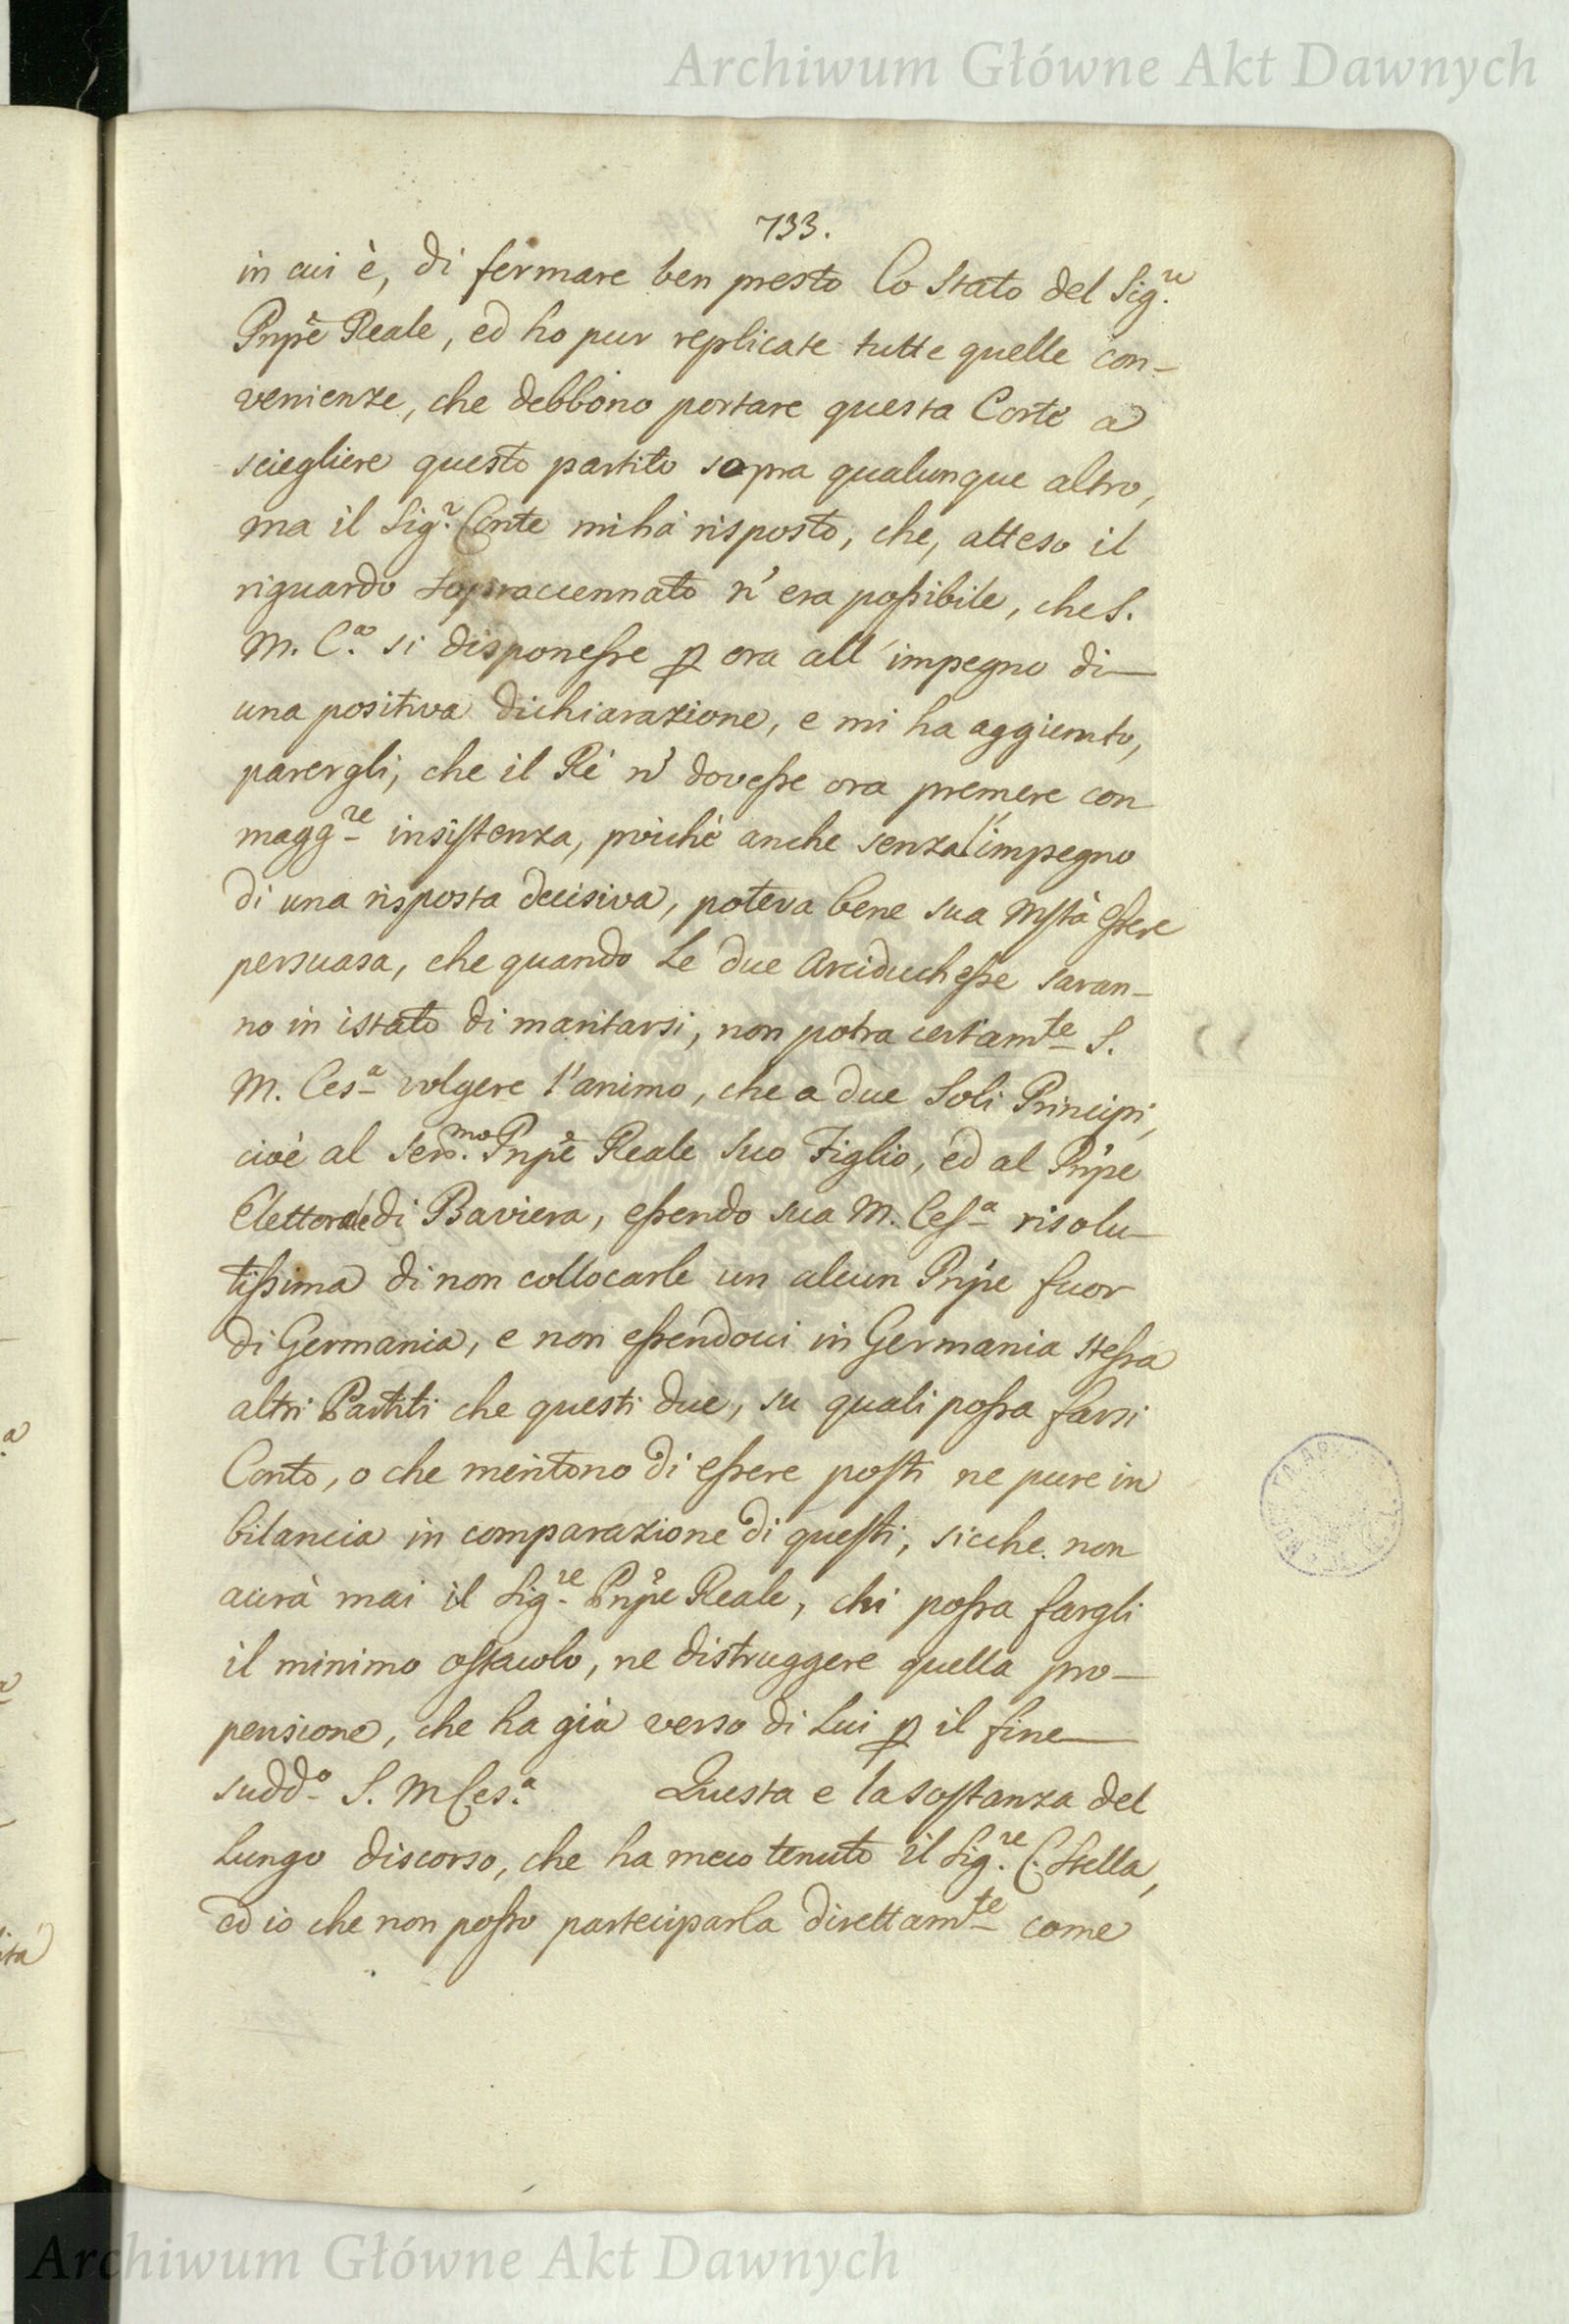 Archiwum Główne Akt Dawnych
733.
in cui è, di fermare ben presto lo Stato del Sig.re
Pnpe Reale, ed ho pur replicate tutte quelle con-
venienze, che debbono portare questa Corte a
sciegliere questo partito sopra qualunque altro,
ma il Sig.r Conte mi hà risposto, che, atteso il
riguardo sopraccennato n' era possibile, che S.
M. C.a si disponesse p ora all' impegno di
una positiva dichiarazione, e mi ha aggiunto,
parergli, che il Rè n' dovesse ora premere con
magg.re insistenza, poichè anche senza l'impegno
di una risposta decisiva, poteva bene sua Mstà essere
persuasa, che quando le due Arciduchesse saran-
no in istato di maritarsi, non potra certam.te S.
M. Ces.a volgere l'animo, che a due Soli Principi,
cioè al Ser.mo Pnpe Reale suo Figlio, ed al Pnpe
Elettorale di Baviera, essendo sua M. Ces.a risolu-
tissima di non collocarle un alcun Pnpe fuor
di Germania, e non essendoui in Germania stessa
altri Partiti che questi due, su quali possa farsi
Conto, o che meritono di essere posti ne pure in
bilancia in comparazione di questi, sicche non
aurà mai il Sig.re Pnpe Reale, chi possa fargli
il minimo ostacolo, ne distruggere quella pro-
pensione, che ha già verso di Lui p il fine
sudd.o S. M Ces.a Questa e la sostanza del
lungo discorso, che ha meco tenuto il Sig.re C. Stella,
ed io che non posso parteciparla direttam.te come
Archiwum Główne Akt Dawnych